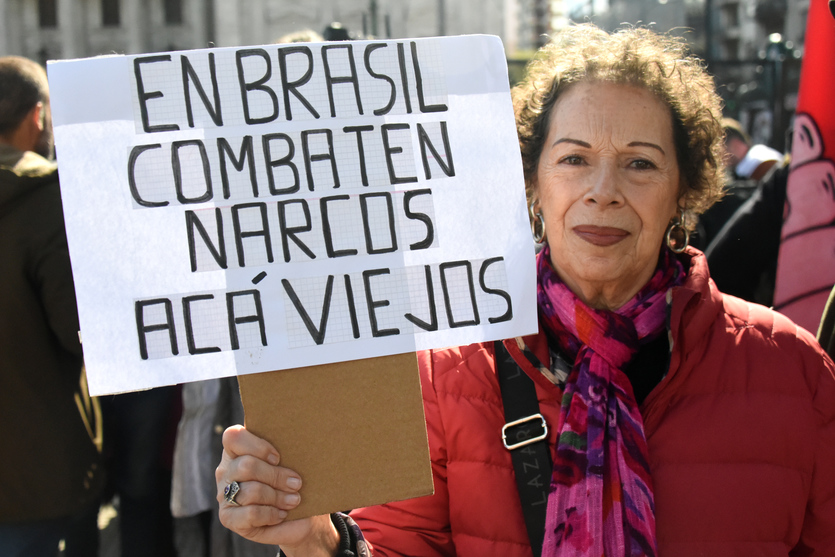 EN BRASIL
COMBATEN
NARCOS
ACÁ VIEJOS
LAZAR